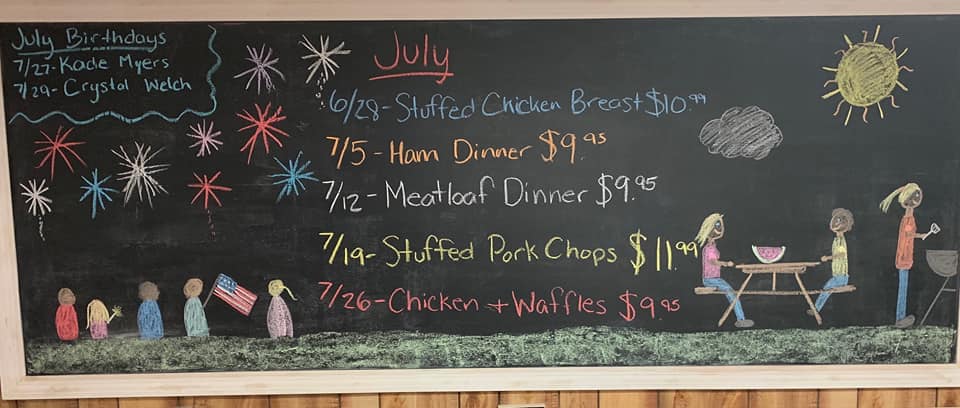 July Birthdays
7/27-Kade Myers
7/29-Crystal Welch
July
6/28-Stuffed Chicken Breast $10.99
7/5-Ham Dinner $9.95
7/12-Meatloaf Dinner $9.95
7/19-Stuffed Pork Chops $11.99
7/26-Chicken + Waffles $9.95